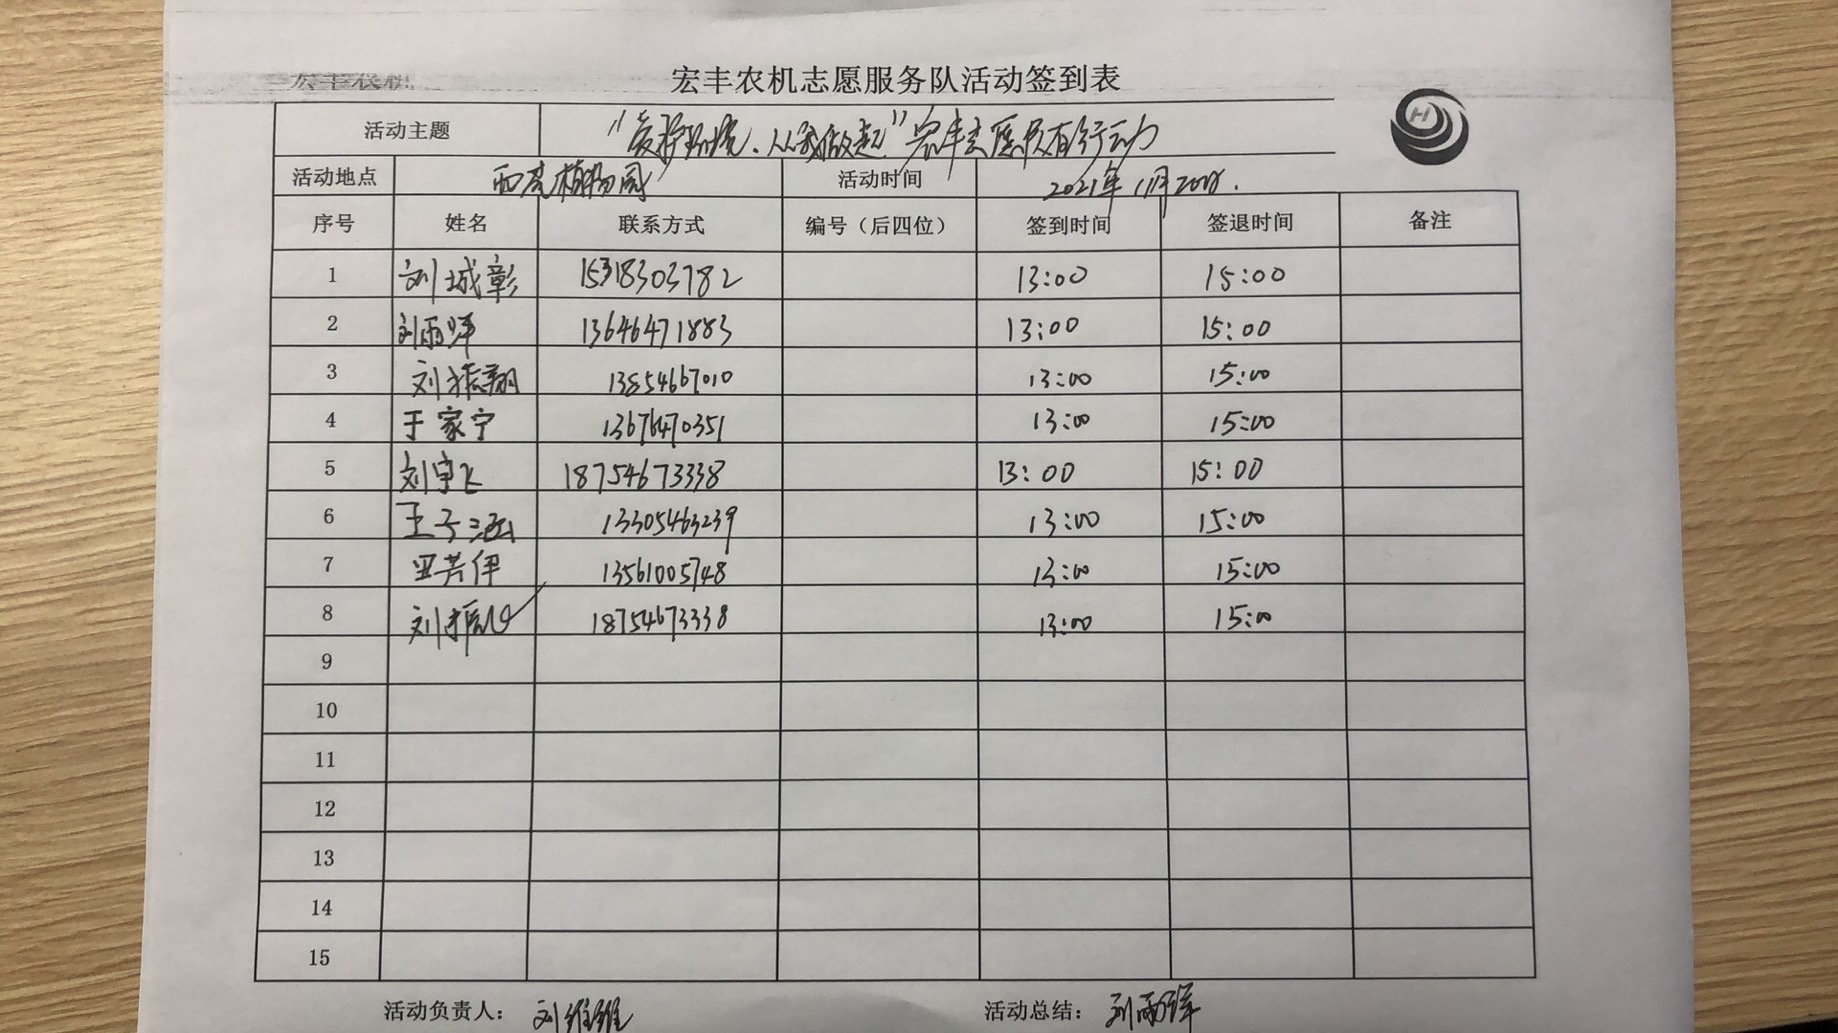 宏丰农机志愿服务队活动签到表
活动主题 "爱护环境、从我做起"宏丰志愿队有行动
活动地点 植物园 活动时间 2021年11月20日.
序号 姓名 联系方式 编号（后四位） 签到时间 签退时间 备注
1 刘城彰 15318303782 13:00 15:00
2 刘雨洋 13646471883 13:00 15:00
3 刘振翔 13854667010 13:00 15:00
4 于家宁 13676470351 13:00 15:00
5 刘宇飞 18754673338 13:00 15:00
6 王子涵 13305463239 13:00 15:00
7 芸伊 13561005748 13:00 15:00
8 刘振 18754673338 13:00 15:00
9
10
11
12
13
14
15
活动负责人： 刘维维 活动总结： 刘雨洋